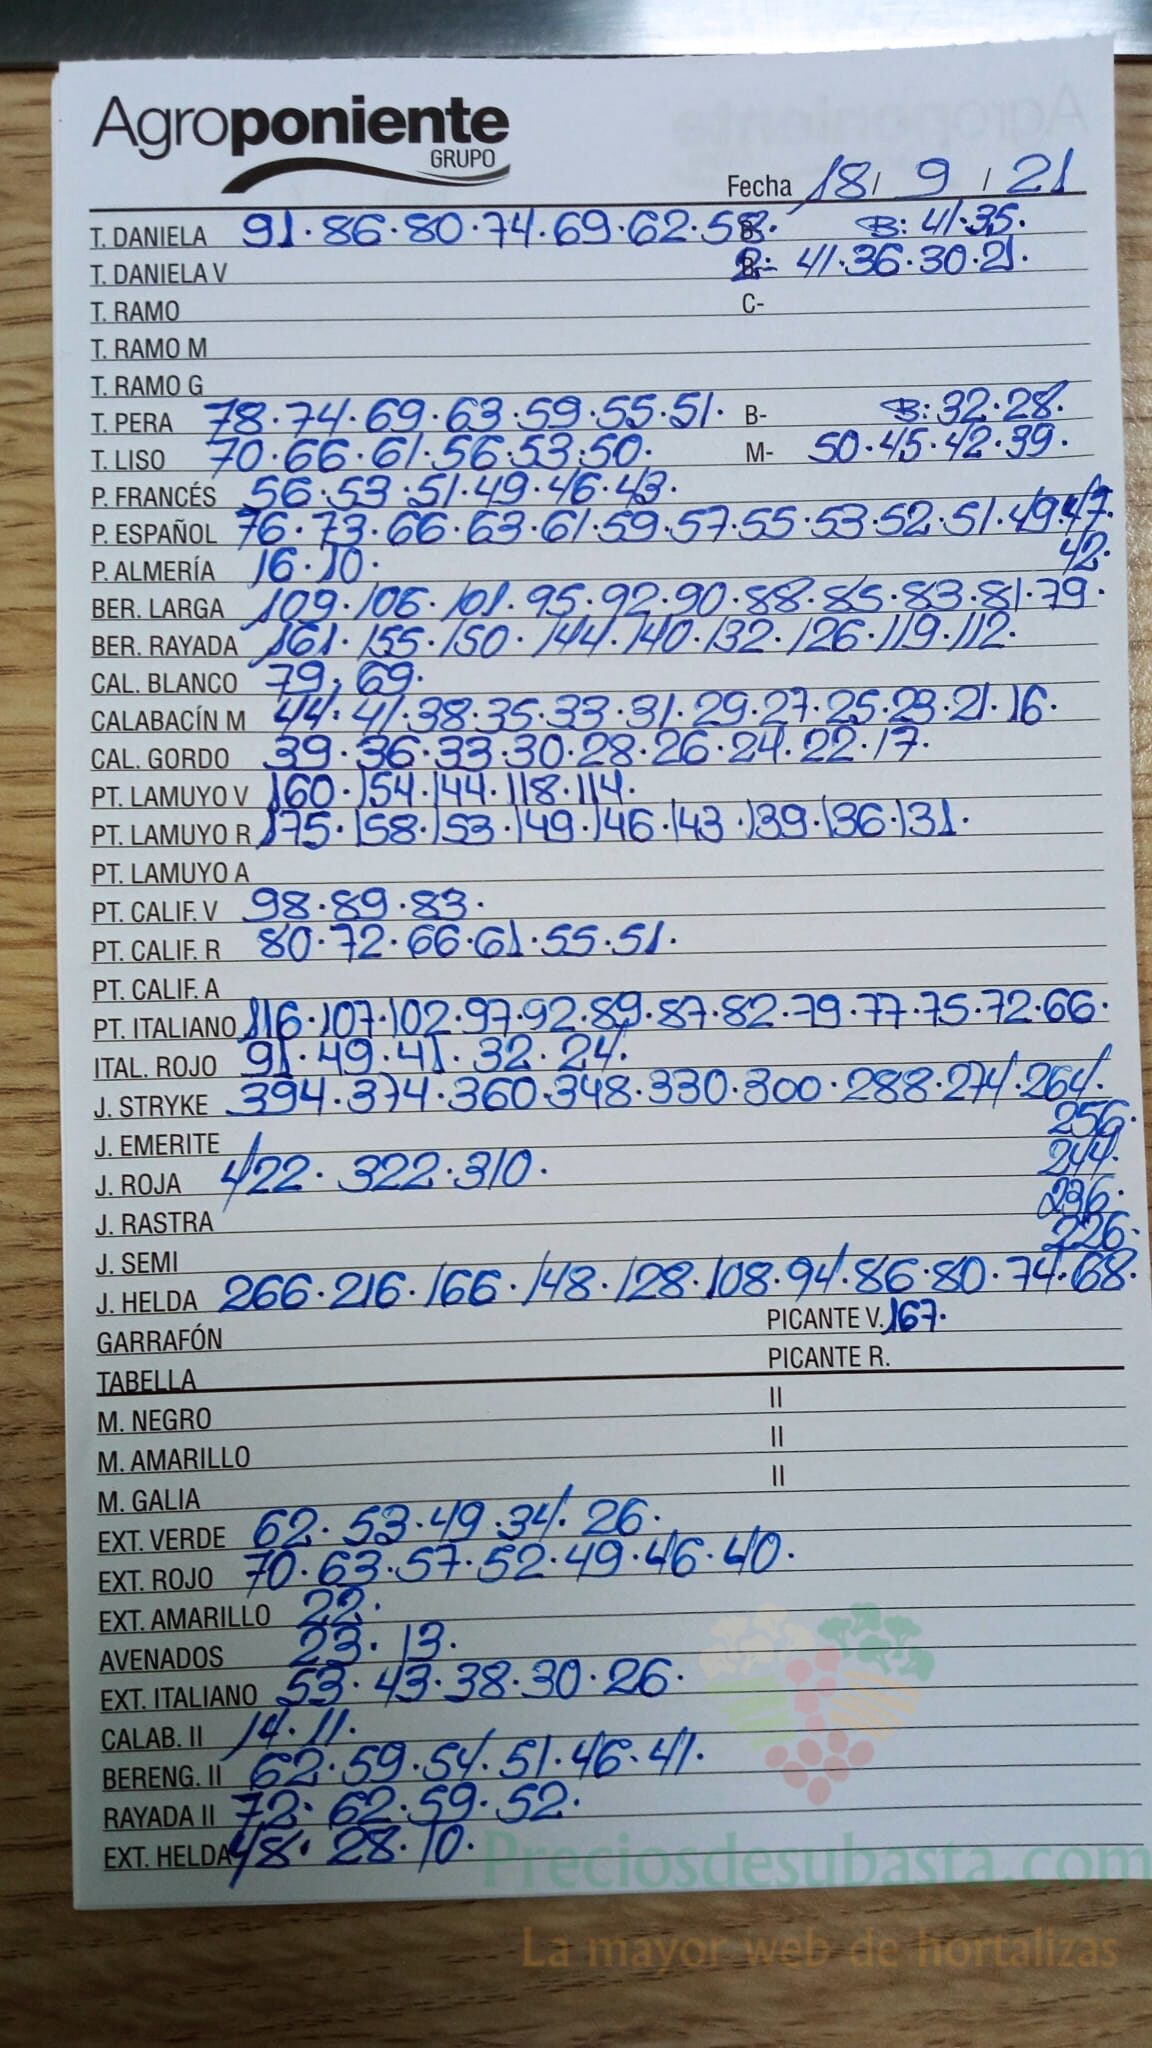 Agroponiente
GRUPO
Fecha 18 / 9 / 21
T. DANIELA 91·86·80·74·69·62·58· B: 41·35·
T. DANIELA V B- 41·36·30·21·
T. RAMO C-
T. RAMO M
T. RAMO G
T. PERA 78·74·69·63·59·55·51· B- B: 32·28·
T. LISO 70·66·61·56·53·50· M- 50·45·42·39·
P. FRANCÉS 56·53·51·49·46·43·
P. ESPAÑOL 76·73·66·63·61·59·57·55·53·52·51·49·47·
P. ALMERÍA 16·10· 42·
BER. LARGA 109·106·101·95·92·90·88·85·83·81·79·
BER. RAYADA 161·155·150·144·140·132·126·119·112·
CAL. BLANCO 79·69·
CALABACÍN M 44·41·38·35·33·31·29·27·25·23·21·16·
CAL. GORDO 39·36·33·30·28·26·24·22·17·
PT. LAMUYO V 160·154·144·118·114·
PT. LAMUYO R 175·158·153·149·146·143·139·136·131·
PT. LAMUYO A
PT. CALIF. V 98·89·83·
PT. CALIF. R 80·72·66·61·55·51·
PT. CALIF. A
PT. ITALIANO 116·107·102·97·92·89·87·82·79·77·75·72·66·
ITAL. ROJO 91·49·41·32·24·
J. STRYKE 394·374·360·348·330·300·288·274·264·
J. EMERITE 256·
J. ROJA 422·322·310· 244·
J. RASTRA 236·
J. SEMI 226·
J. HELDA 266·216·166·148·128·108·94·86·80·74·68·
GARRAFÓN PICANTE V. 167·
TABELLA PICANTE R.
M. NEGRO II
M. AMARILLO II
M. GALIA II
EXT. VERDE 62·53·49·34·26·
EXT. ROJO 70·63·57·52·49·46·40·
EXT. AMARILLO 22·
AVENADOS 23·13·
EXT. ITALIANO 53·43·38·30·26·
CALAB. II 14·11·
BERENG. II 62·59·54·51·46·41·
RAYADA II 72·62·59·52·
EXT. HELDA 48·28·10·
Preciosdesubasta.com
La mayor web de hortalizas